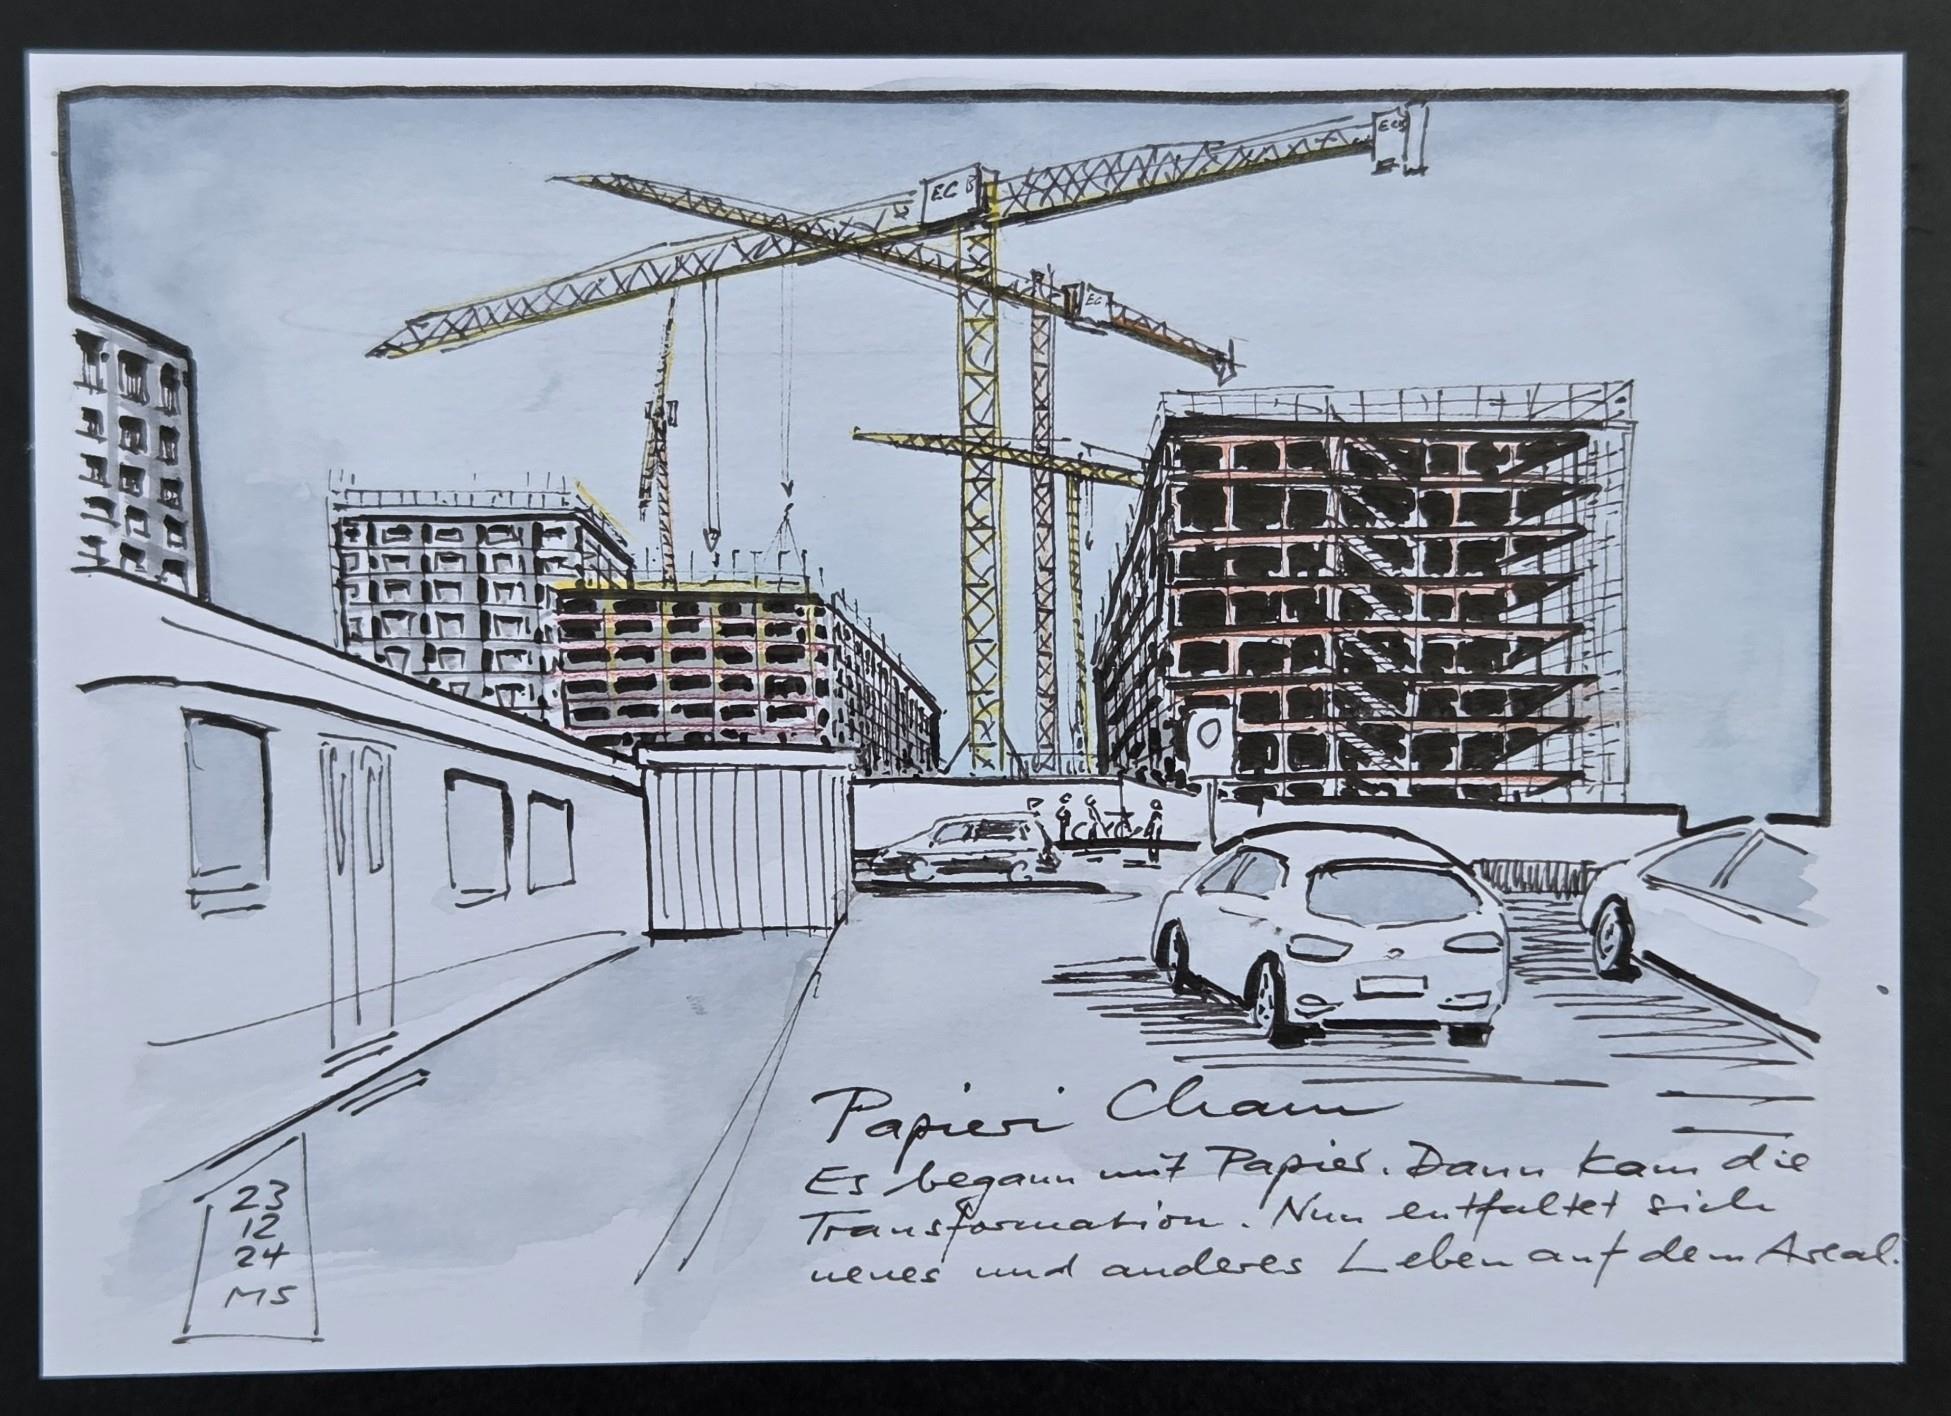 EC B
ECB
EC
Papieri Cham
Es begann mit Papier. Dann kam die
Transformation. Nun entfaltet sich
neues und anderes Leben auf dem Areal.
23
12
24
MS